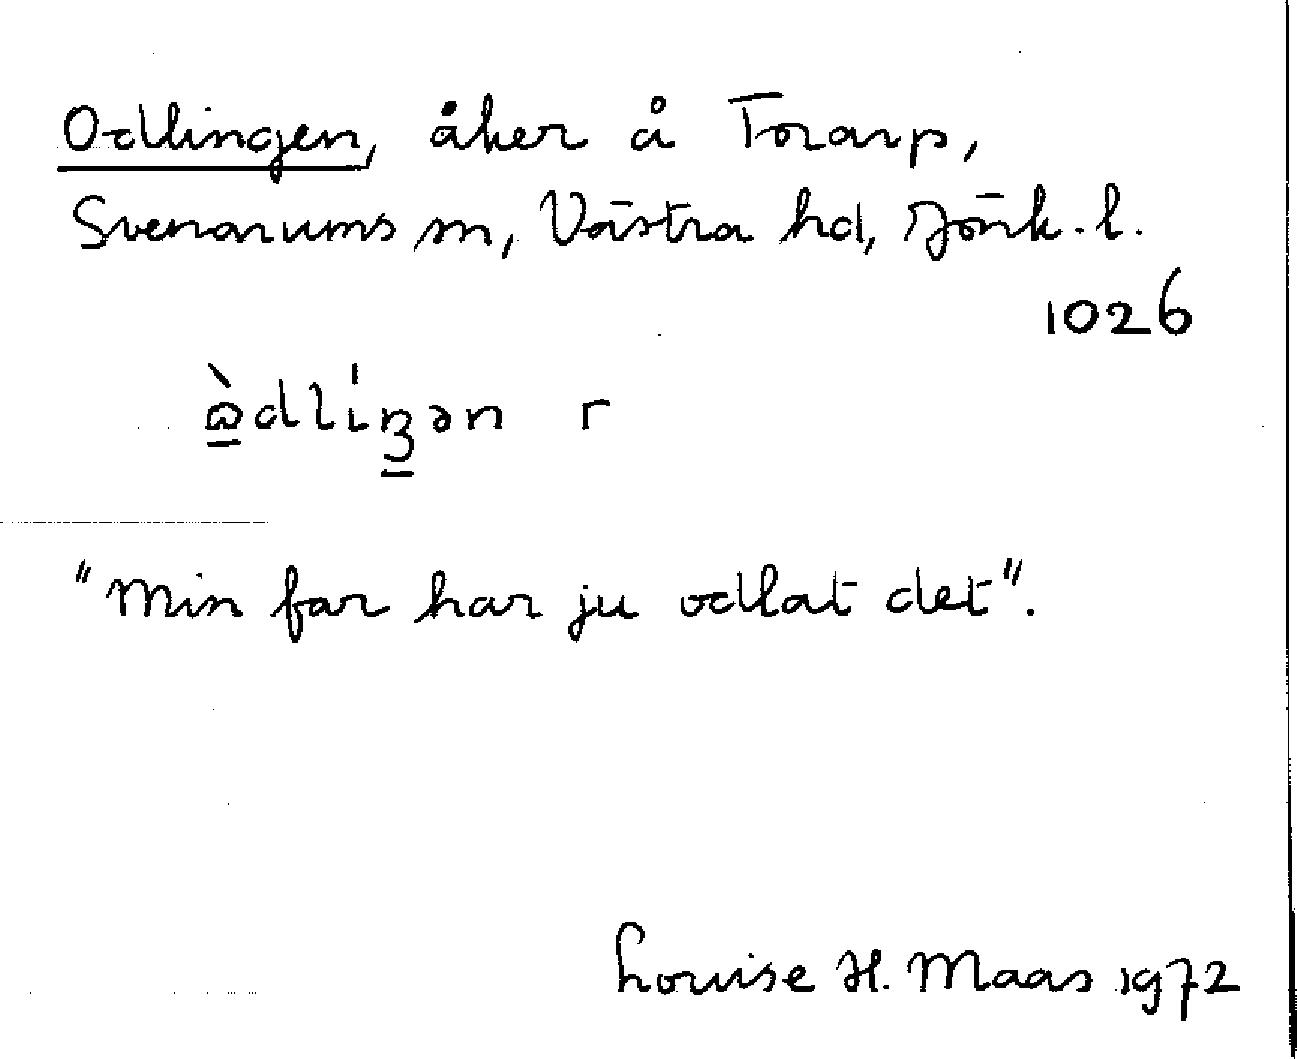 Odlingen, åker å Torarp,
Svenarums sn, Västra hd, Jönk. l.
1026
"Min far har ju odlat det".
Louise H. Maas 1972